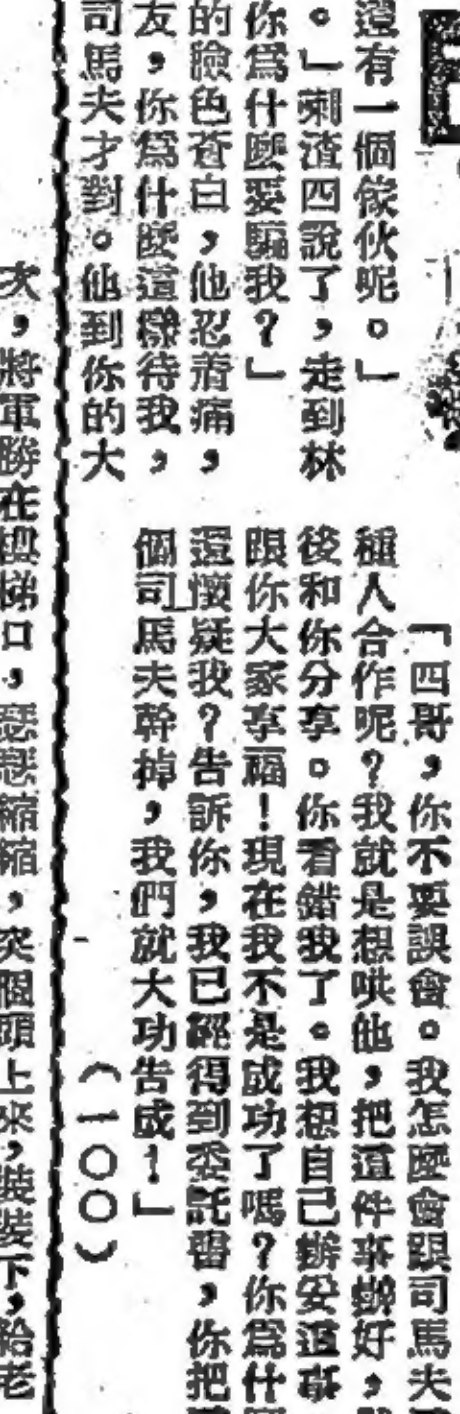 還有一個傢伙呢。」
。」喇渣四說了，走到林
你爲什麼要騙我？」
的臉色蒼白，他忍着痛，
友，你爲什麼這樣待我，
司馬夫才對。他到你的大
「四哥，你不要誤會。我怎麼會跟司馬夫
種人合作呢？我就是想哄他，把這件事辦好，
後和你分享。你看錯我了。我想自己辦妥這事
跟你大家享福！現在我不是成功了嗎？你爲什
還懷疑我？告訴你，我已經得到委託書，你把
個司馬夫幹掉，我們就大功告成！」
（一〇〇）
次，將軍勝在樓梯口，瑟瑟縮縮，突個頭上來，裝裝下，給老